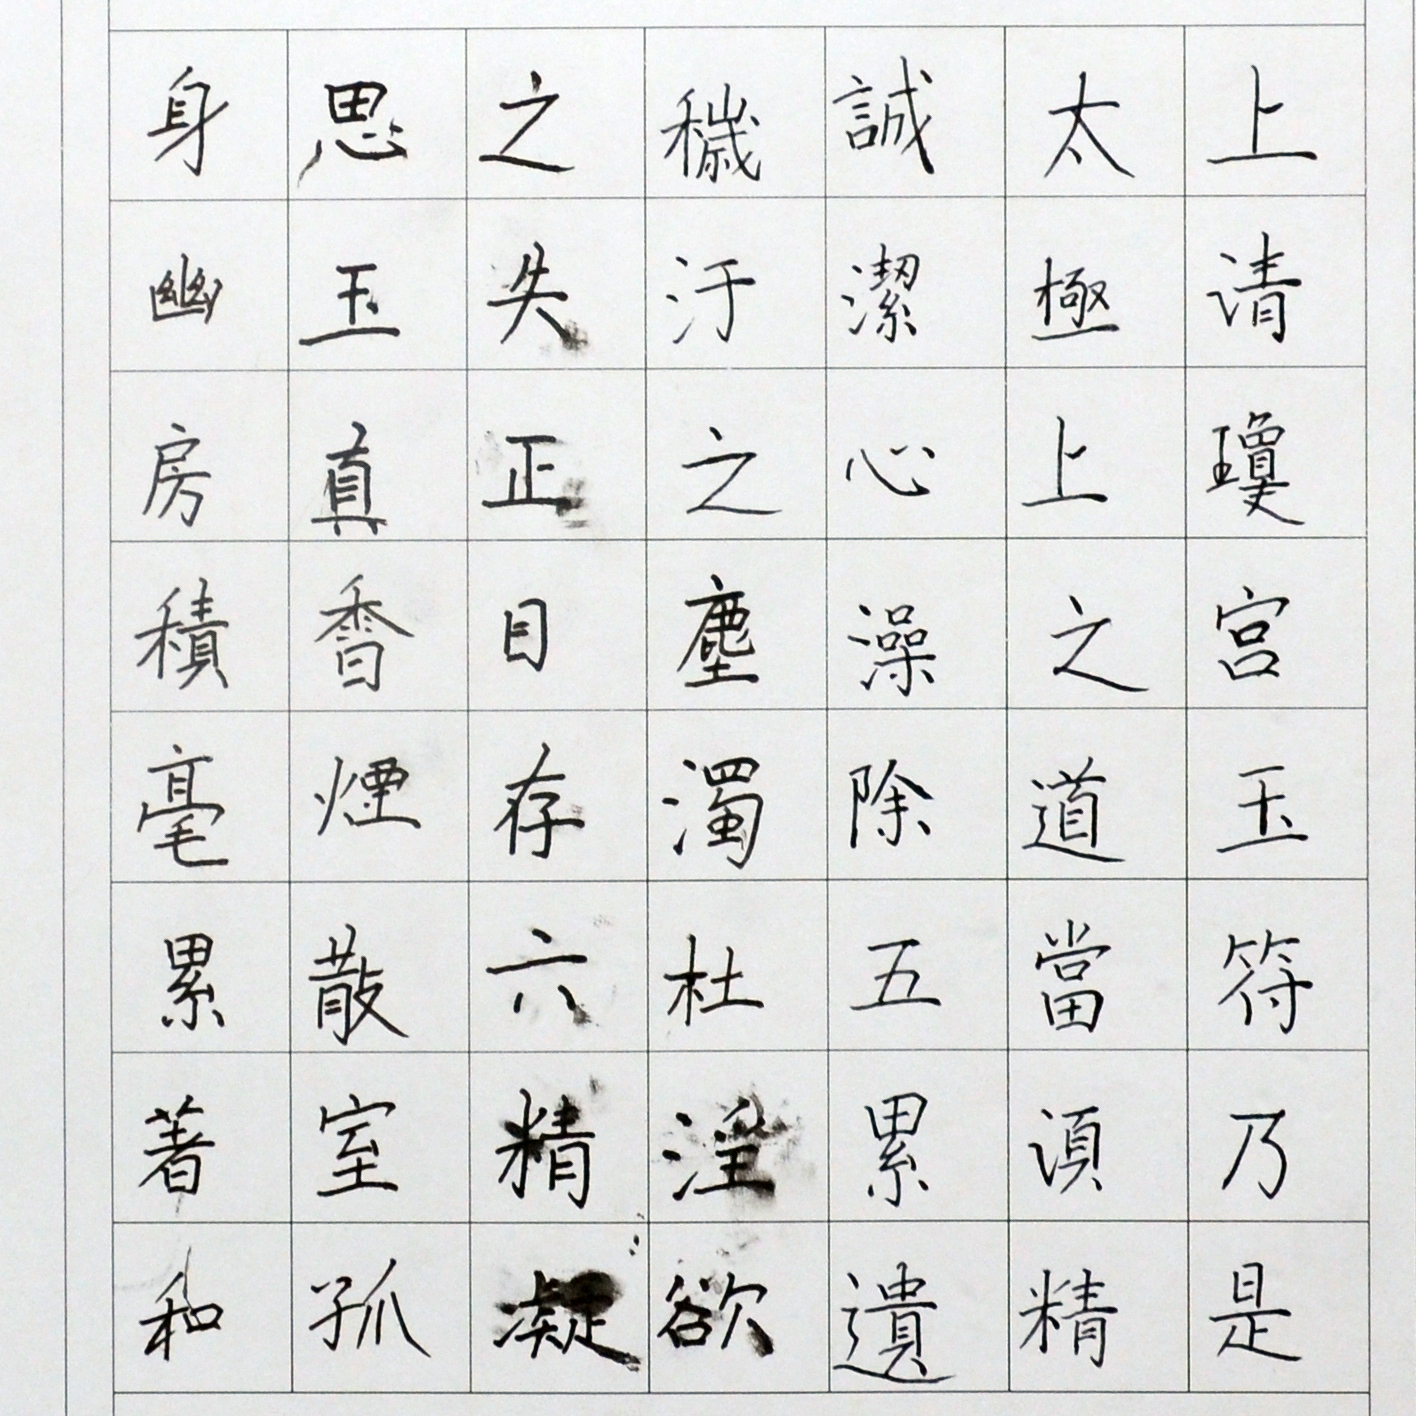 上清瓊宮玉符乃是
太極上之道當湏精
誠潔心澡除五累遺
穢汙之塵濁杜淫欲
之失正目存六精凝
思玉真香煙散室孤
身幽房積毫累著和